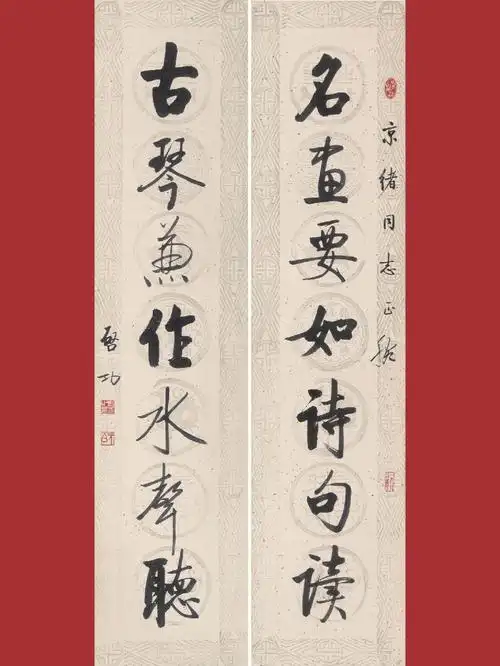 京绪同志正腕
名画要如诗句读
古琴兼作水聲聽
啓功